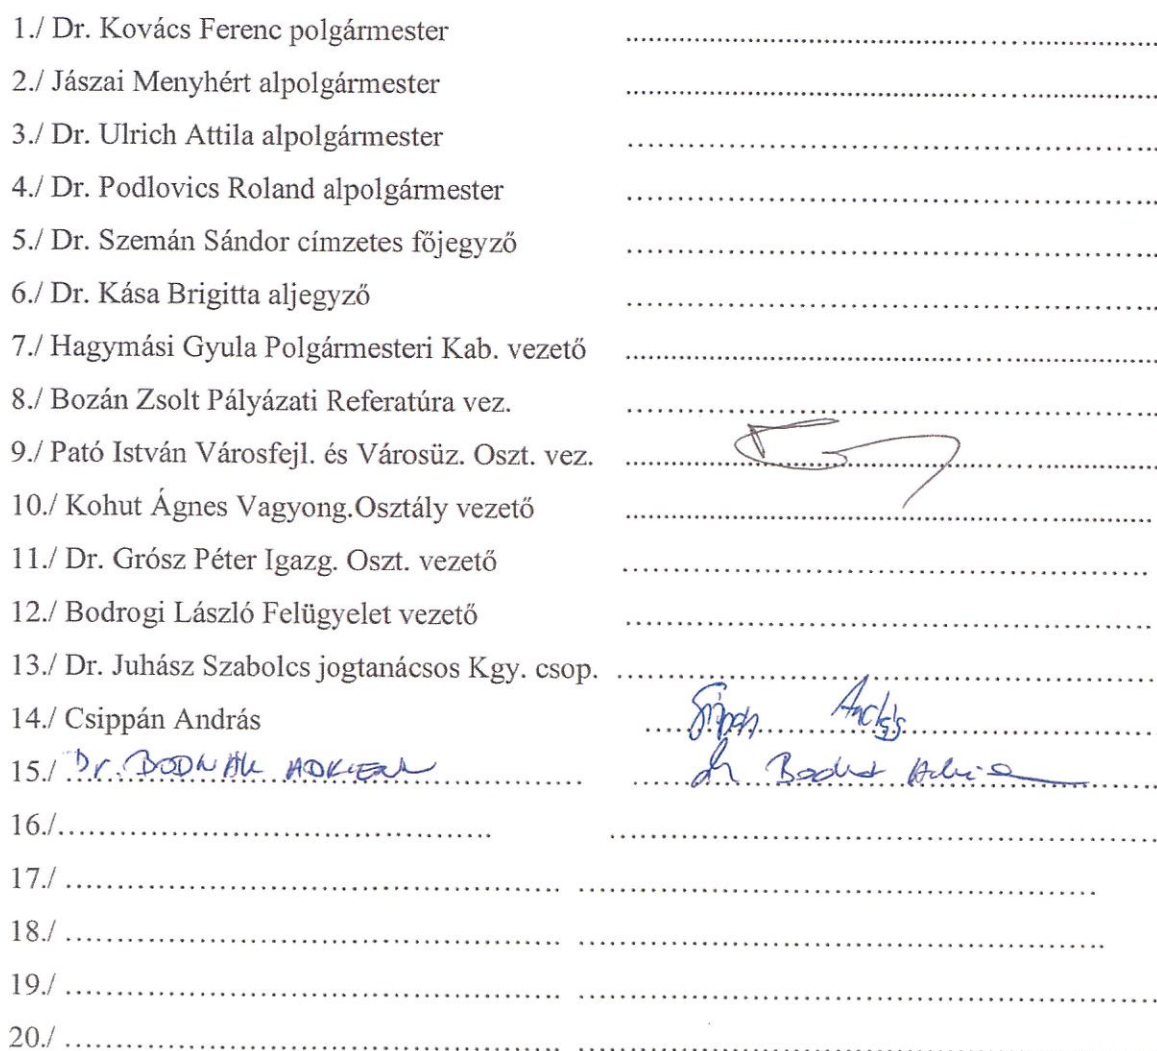 1./ Dr. Kovács Ferenc polgármester ........................................
2./ Jászai Menyhért alpolgármester ........................................
3./ Dr. Ulrich Attila alpolgármester ........................................
4./ Dr. Podlovics Roland alpolgármester ........................................
5./ Dr. Szemán Sándor címzetes főjegyző ........................................
6./ Dr. Kása Brigitta aljegyző ........................................
7./ Hagymási Gyula Polgármesteri Kab. vezető ........................................
8./ Bozán Zsolt Pályázati Referatúra vez. ........................................
9./ Pató István Városfejl. és Városüz. Oszt. vez. ........................................
10./ Kohut Ágnes Vagyong.Osztály vezető ........................................
11./ Dr. Grósz Péter Igazg. Oszt. vezető ........................................
12./ Bodrogi László Felügyelet vezető ........................................
13./ Dr. Juhász Szabolcs jogtanácsos Kgy. csop. ........................................
14./ Csippán András ........................................
15./ Dr. BODNÁR ADRIENN ........................................
16./........................................ ........................................
17./ ........................................ ........................................
18./ ........................................ ........................................
19./ ........................................ ........................................
20./ ........................................ ........................................